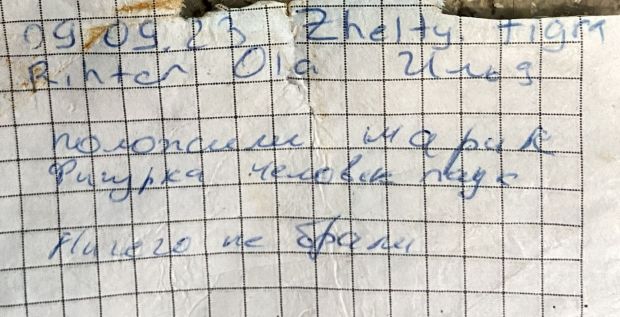 09.09.23 Zhelty tigra
Rihter Ola Ильд
положили шарик
Фигурка человек паук
Ничего не брали